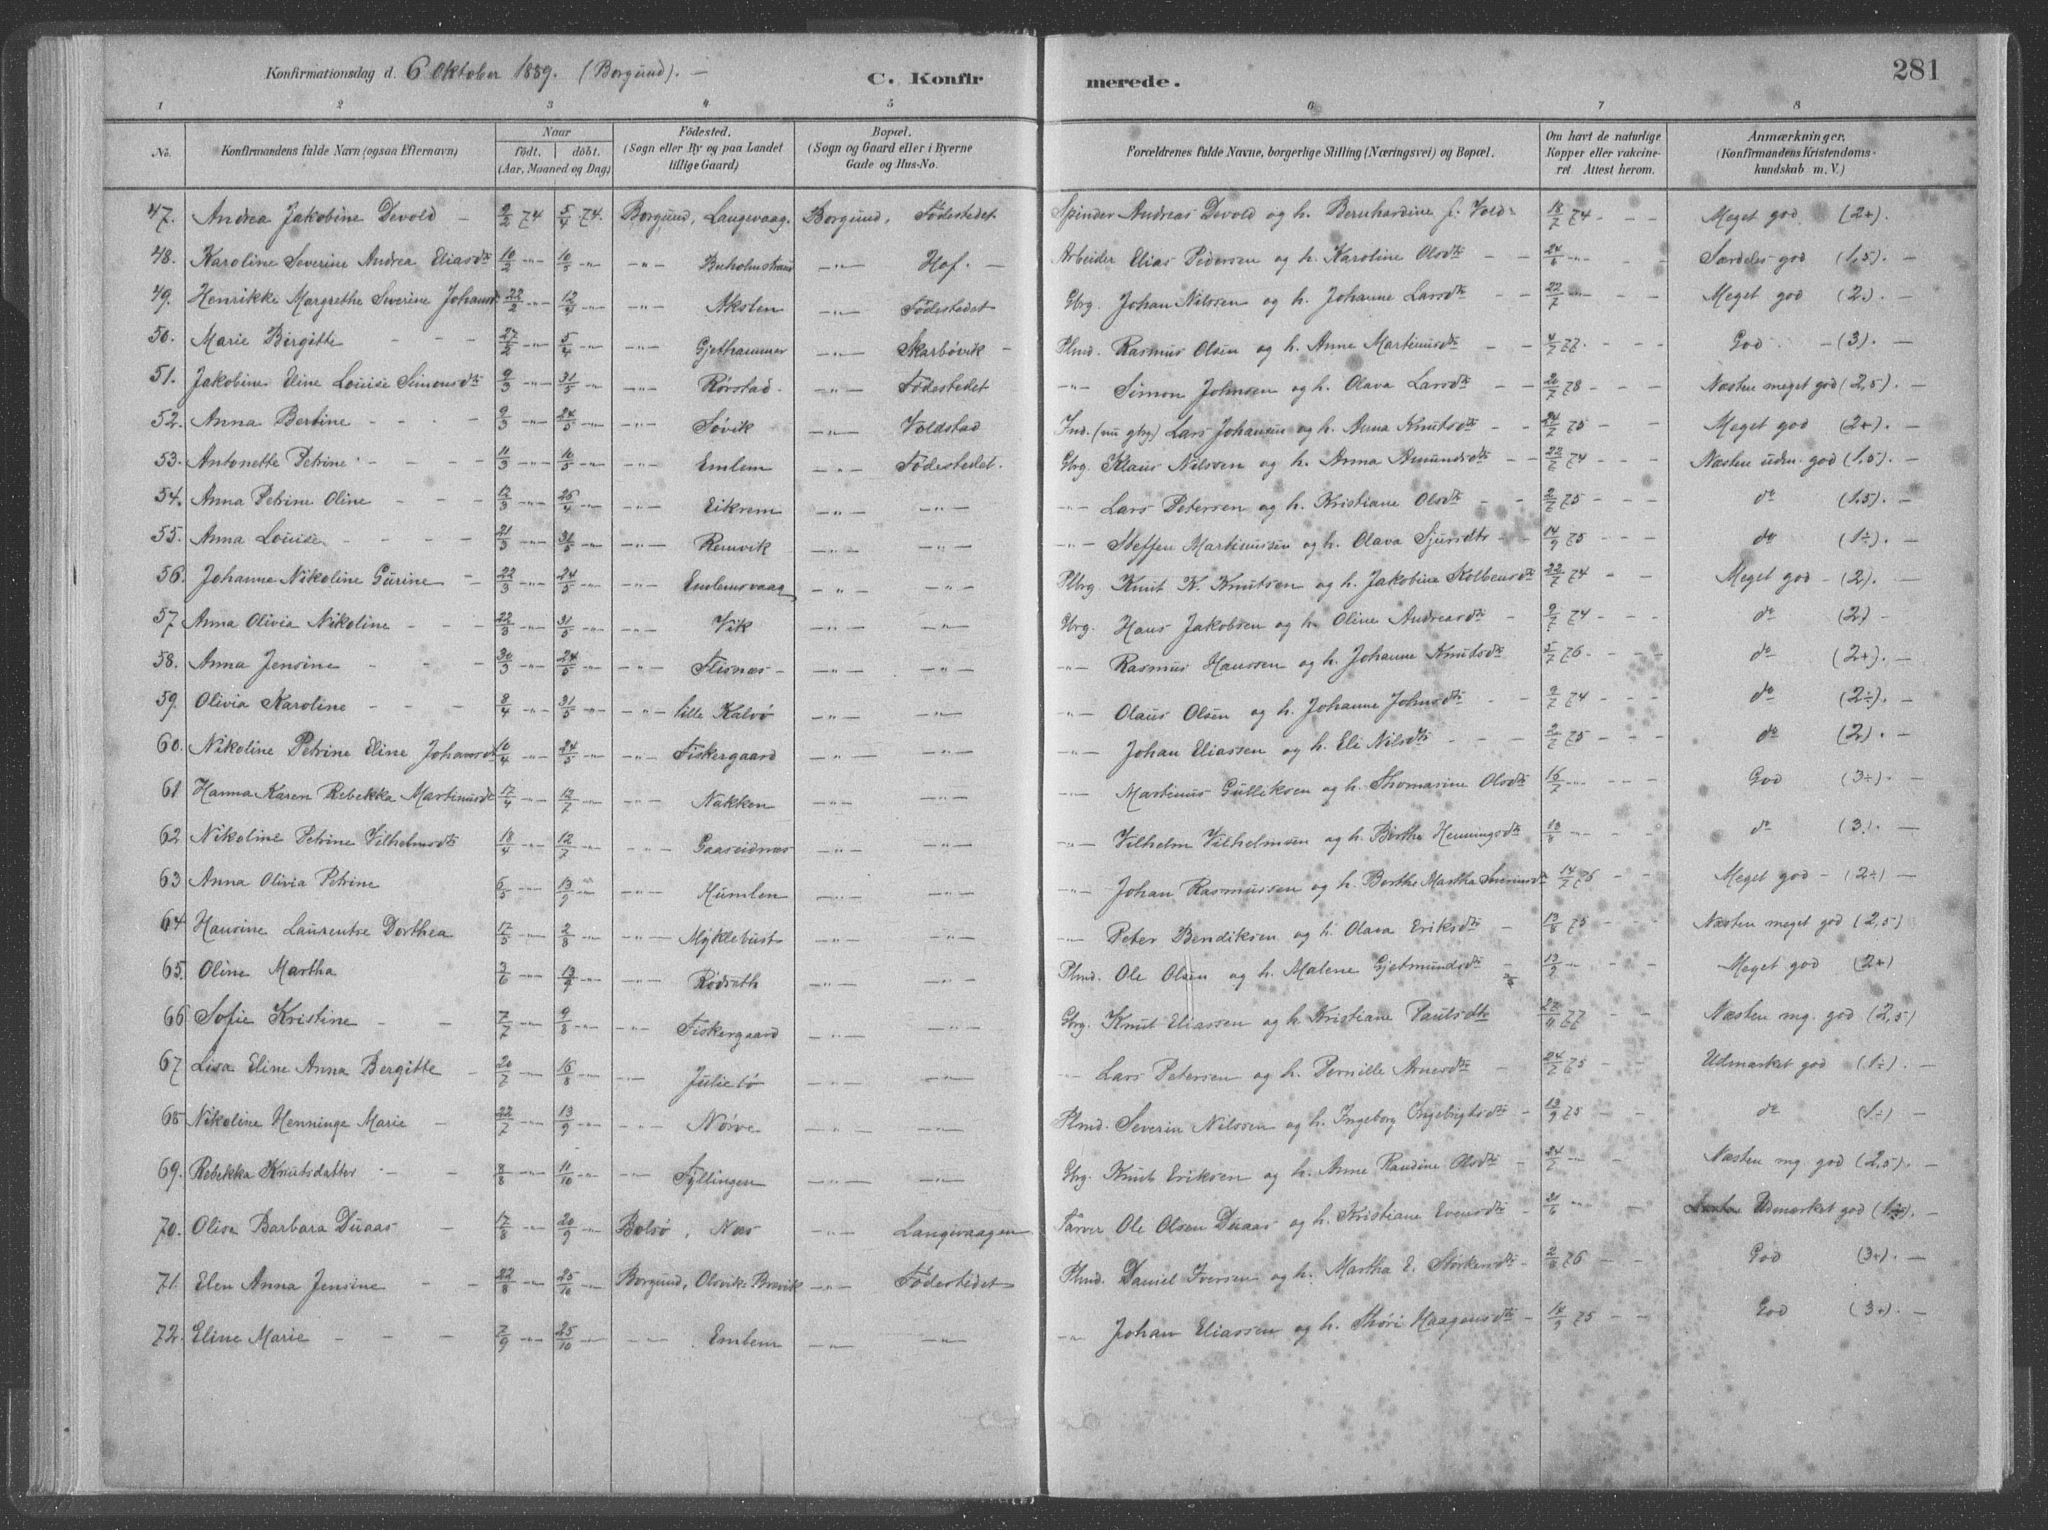 Konfirmationsdag d. 6 Oktober 1889. (Borgund). – C. Konfirmerede. 281
1 2 3 4 5 6 7 8
No. Konfirmandens fulde Navn (ogsaa Efternavn) Naar født. døbt. (Aar, Maaned og Dag) Fødested. (Sogn eller By og paa Landet tillige Gaard) Bopæl. (Sogn og Gaard eller i Byerne Gade og Hus-No. Forældrenes fulde Navne, borgerlige Stilling (Næringsvei) og Bopæl. Om havt de naturlige Kopper eller vakcineret Attest herom. Anmærkninger. (Konfirmandens Kristendomskundskab m. V.)
47. Andrea Jakobine Devold – 9/2 74 5/4 74. Borgund, Langevaag. Borgund, Födestedet Spinder Andreas Devold og h. Bernhardine f. Vold 18/7 74 - - Meget god (2+).
48. Karoline Severine Andrea Eliasdtr 10/2 -"- 10/5 -"- -"- Buholmstrand -"- Hof. – Arbeider Elias Pedersen og h. Karoline Olsdtr - - 24/6 -"- - - Særdeles god (1,5). –
49. Henrikke Margrethe Severine Johansd 22/2 -"- 12/4 -"- -"- Akslen -"- Födestedet Gbrg. Johan Nilssen og h. Johanne Larsdtr - - 22/7 -"- - - Meget god (2.) –
50. Marie Birgitte - - - 27/2 -"- 5/4 -"- -"- Gjethammer -"- Skarbövik – Plmd. Rasmus Olsen og h. Anne Martinusdtr - - 4/7 77. - - God - (3). –
51. Jakobine Eline Louise Simonsdtr 9/3 -"- 31/5 -"- -"- Rörstad. -"- Födestedet -"- Simon Johnsen og h. Olava Larsdtr - - 20/7 78 - - Næsten meget god (2,5). –
52. Anna Bertine - - - 9/3 -"- 24/5 -"- -"- Søvik -"- Voldstad Ind. (nu gbrg) Lars Johansen og h. Anna Knutsdtr - - 24/7 75 - - Meget god (2+). –
53. Antonette Petrine - - - 11/3 -"- 10/5 -"- -"- Emlem -"- Födestedet. Gbrg. Klaus Nilssen og h. Anna Amundsdtr - - 22/7 74 - - Næsten udm. god (1,5). –
54. Anna Petrine Oline - - - 12/3 -"- 26/4 -"- -"- Eikrem -"- -"- -"- Lars Petersen og h. Kristiane Olsdtr - - 2/7 75 - - do (1,5). –
55. Anna Louise - - - 21/3 -"- 31/5 -"- -"- Remvik -"- -"- -"- Steffen Martinussen og h. Olava Sjursdtr - 14/9 75 - - do (1÷). –
56. Johanne Nikoline Gurine - 22/3 -"- 24/5 -"- -"- Emlemsvaag -"- -"- Plbrg. Knut K. Knutsen og h. Jakobine Kolbensdtr 22/7 74 - - Meget god - (2). –
57 Anna Olivia Nikoline - - 22/3 -"- 31/5 -"- -"- Vik -"- -"- Gbrg. Hans Jakobsen og h. Oline Andreasdtr - 9/7 74 - - do (2) –
58. Anna Jensine - - - 30/3 -"- 24/5 -"- -"- Flisnæs – -"- -"- -"- Rasmus Hanssen og h. Johanne Knutsdtr 5/7 76. - - do (2+). –
59. Olivia Karoline - - - 8/4 -"- 31/5 -"- -"- lille Kalvö -"- -"- -"- Olaus Olsen og h. Johanne Johnsdtr - - 9/7 74 - - do (2÷). –
60. Nikoline Petrine Eline Johansdtr 10/4 -"- 24/5 -"- -"- Fiskergaard -"- -"- Johan Eliassen og h. Eli Nilsdtr - - - 2/7 75 - - do (2). –
61. Hanna Karen Rebekka Martinusdtr 17/4 -"- 12/7 -"- Nakken -"- -"- -"- Martinus Gulliksen og h. Thomasine Olsdtr 16/7 -"- - - God (3÷). –
62 Nikoline Petrine Vilhelmsdtr 18/4 -"- 12/7 -"- -"- Gaaseidnæs -"- -"- -"- Vilhelm Vilhelmsen og h. Berthe Henningsdtr 13/8 -"- - - do (3.) –
63 Anna Olivia Petrine 6/5 -"- 13/9 -"- -"- Humlen -"- -"- -"- Johan Rasmussen og h. Berthe Martha 14/7 76 - - Meget god - (2÷) –
64 Hansine Laurentse Dorthea 17/5 -"- 2/8 -"- -"- Myklebust -"- -"- -"- Peter Bendiksen og h. Olava Eriksdtr - 13/8 75 - - Næsten meget god (2,5)
65. Oline Martha 3/6 -"- 13/9 -"- -"- Rödseth -"- -"- Plmd. Ole Olsen og h. Malene Gjetmundsdtr - 13/9 - - - Meget god (2+)
66 Sofie Kristine - - 7/7 -"- 9/8 -"- -"- Fiskergaard -"- -"- Gbrg. Knut Eliassen og h. Kristiane Paulsdtr 27/11 77 - - Næsten mg. god (2,5)
67 Lisa Eline Anna Bergitte - 20/7 -"- 16/8 -"- -"- Juliebö -"- -"- -"- Lars Petersen og h. Pernille Arnesdtr - 24/7 75 - - Udmærket god (1÷) –
68 Nikoline Henninge Marie - 22/7 -"- 13/9 -"- -"- Nørve -"- -"- Plmd. Severin Nilssen og h. Ingeborg Ingebrigtsdtr - 13/9 75 - - do (1÷) –
69. Rebekka Knutsdatter - - 8/8 -"- 11/10 -"- -"- Fyllingen -"- -"- Gbrg. Knut Eriksen og h. Anne Randine Olsdtr - 24/7 -"- - Næsten mg. god (2,5). –
70. Olise Barbara Duaas - 17/8 -"- 20/9 -"- Bolsö, Næs -"- Langevaagen Farver Ole Olsen Duaas og h. Kristiane Evensdtr - 21/6 -"- - Udmærket god (1÷). –
71. Elen Anna Jensine - - 22/8 -"- 25/10 -"- Borgund, Olsvik Brevik -"- Födestedet Plmd. Daniel Iversen og h. Martha E. Störkersdtr - 2/8 76 - - God (3+). –
72. Eline Marie - - - 7/9 -"- 25/10 -"- -"- Emblem -"- -"- -"- Johan Eliassen og h. Thöri Haagensdtr - 14/9 75 - - God (3+). –